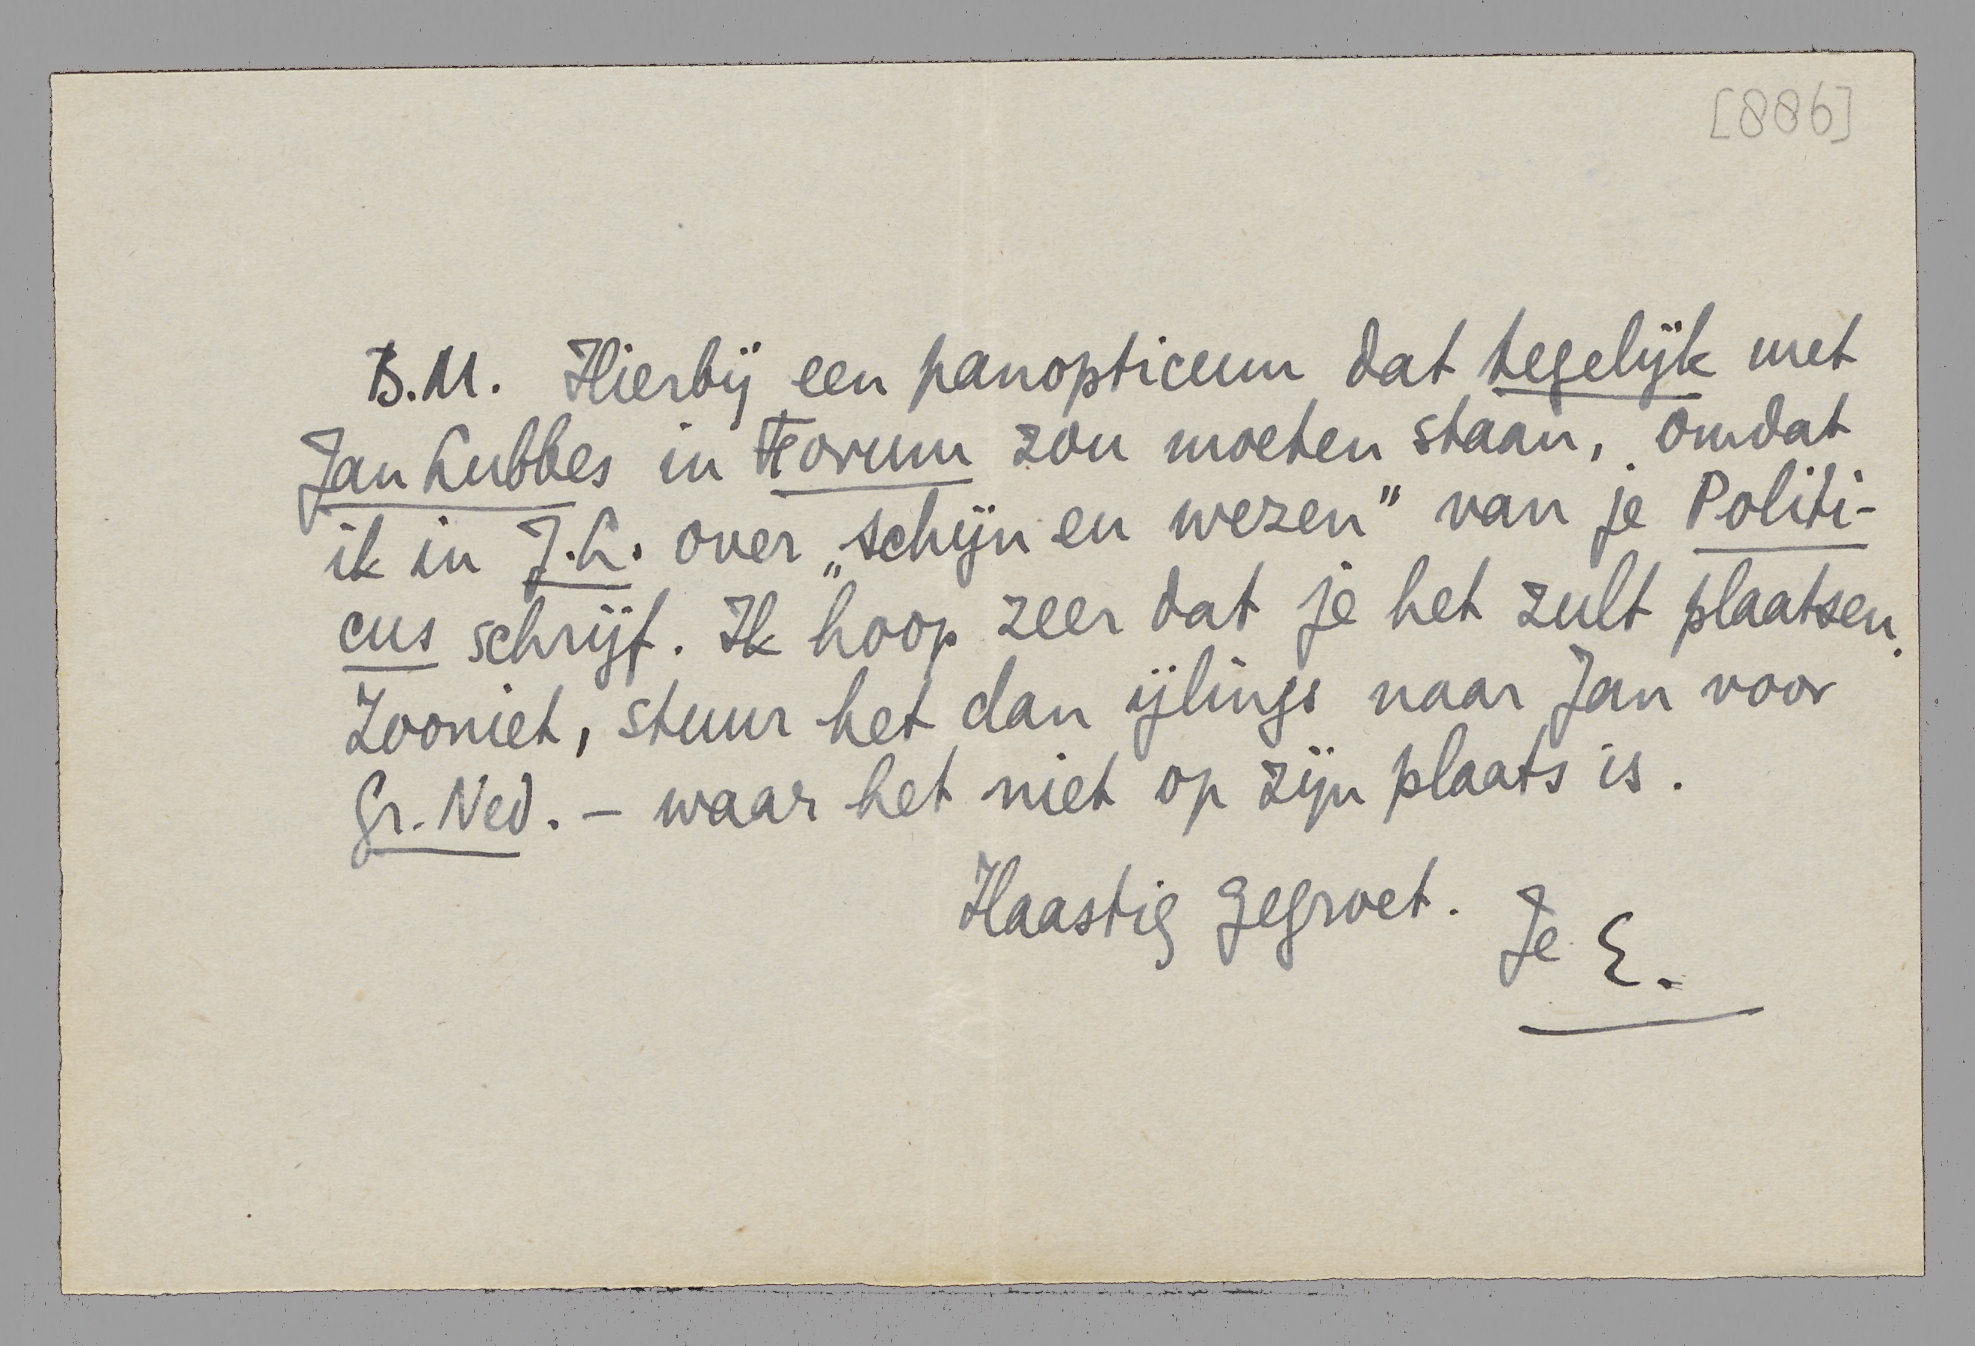 [886]
B.M. Hierbij een panopticum dat tegelijk met
Jan Lubbes in Forum zou moeten staan, omdat
ik in J.L. over „schijn en wezen” van je Politi-
cus schrijf. Ik hoop zeer dat je het zult plaatsen.
Zooniet, stuur het dan ijlings naar Jan voor
Gr. Ned. – waar het niet op zijn plaats is.
Haastig gegroet. Je E.